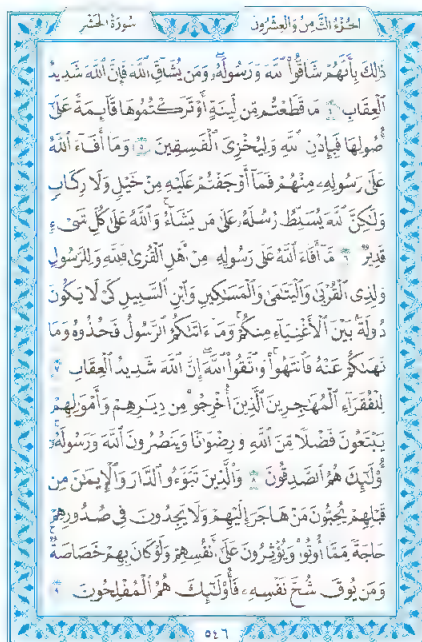 الجزء الثامن والعشرون سورة الحشر
ذَٰلِكَ بِأَنَّهُمْ شَاقُّوا۟ ٱللَّهَ وَرَسُولَهُۥ وَمَن يُشَآقِّ ٱللَّهَ فَإِنَّ ٱللَّهَ شَدِيدُ
ٱلْعِقَابِ ٤ مَا قَطَعْتُم مِّن لِّينَةٍ أَوْ تَرَكْتُمُوهَا قَآئِمَةً عَلَىٰٓ
أُصُولِهَا فَبِإِذْنِ ٱللَّهِ وَلِيُخْزِىَ ٱلْفَٰسِقِينَ ٥ وَمَآ أَفَآءَ ٱللَّهُ
عَلَىٰ رَسُولِهِۦ مِنْهُمْ فَمَآ أَوْجَفْتُمْ عَلَيْهِ مِنْ خَيْلٍ وَلَا رِكَابٍ
وَلَٰكِنَّ ٱللَّهَ يُسَلِّطُ رُسُلَهُۥ عَلَىٰ مَن يَشَآءُ وَٱللَّهُ عَلَىٰ كُلِّ شَىْءٍ
قَدِيرٌ ٦ مَّآ أَفَآءَ ٱللَّهُ عَلَىٰ رَسُولِهِۦ مِنْ أَهْلِ ٱلْقُرَىٰ فَلِلَّهِ وَلِلرَّسُولِ
وَلِذِى ٱلْقُرْبَىٰ وَٱلْيَتَٰمَىٰ وَٱلْمَسَٰكِينِ وَٱبْنِ ٱلسَّبِيلِ كَىْ لَا يَكُونَ
دُولَةًۢ بَيْنَ ٱلْأَغْنِيَآءِ مِنكُمْ وَمَآ ءَاتَىٰكُمُ ٱلرَّسُولُ فَخُذُوهُ وَمَا
نَهَىٰكُمْ عَنْهُ فَٱنتَهُوا۟ وَٱتَّقُوا۟ ٱللَّهَ إِنَّ ٱللَّهَ شَدِيدُ ٱلْعِقَابِ ٧
لِلْفُقَرَآءِ ٱلْمُهَٰجِرِينَ ٱلَّذِينَ أُخْرِجُوا۟ مِن دِيَٰرِهِمْ وَأَمْوَٰلِهِمْ
يَبْتَغُونَ فَضْلًا مِّنَ ٱللَّهِ وَرِضْوَٰنًا وَيَنصُرُونَ ٱللَّهَ وَرَسُولَهُۥٓ
أُو۟لَٰٓئِكَ هُمُ ٱلصَّٰدِقُونَ ٨ وَٱلَّذِينَ تَبَوَّءُو ٱلدَّارَ وَٱلْإِيمَٰنَ مِن
قَبْلِهِمْ يُحِبُّونَ مَنْ هَاجَرَ إِلَيْهِمْ وَلَا يَجِدُونَ فِى صُدُورِهِمْ
حَاجَةً مِّمَّآ أُوتُوا۟ وَيُؤْثِرُونَ عَلَىٰٓ أَنفُسِهِمْ وَلَوْ كَانَ بِهِمْ خَصَاصَةٌ
وَمَن يُوقَ شُحَّ نَفْسِهِۦ فَأُو۟لَٰٓئِكَ هُمُ ٱلْمُفْلِحُونَ ٩
٥٤٦